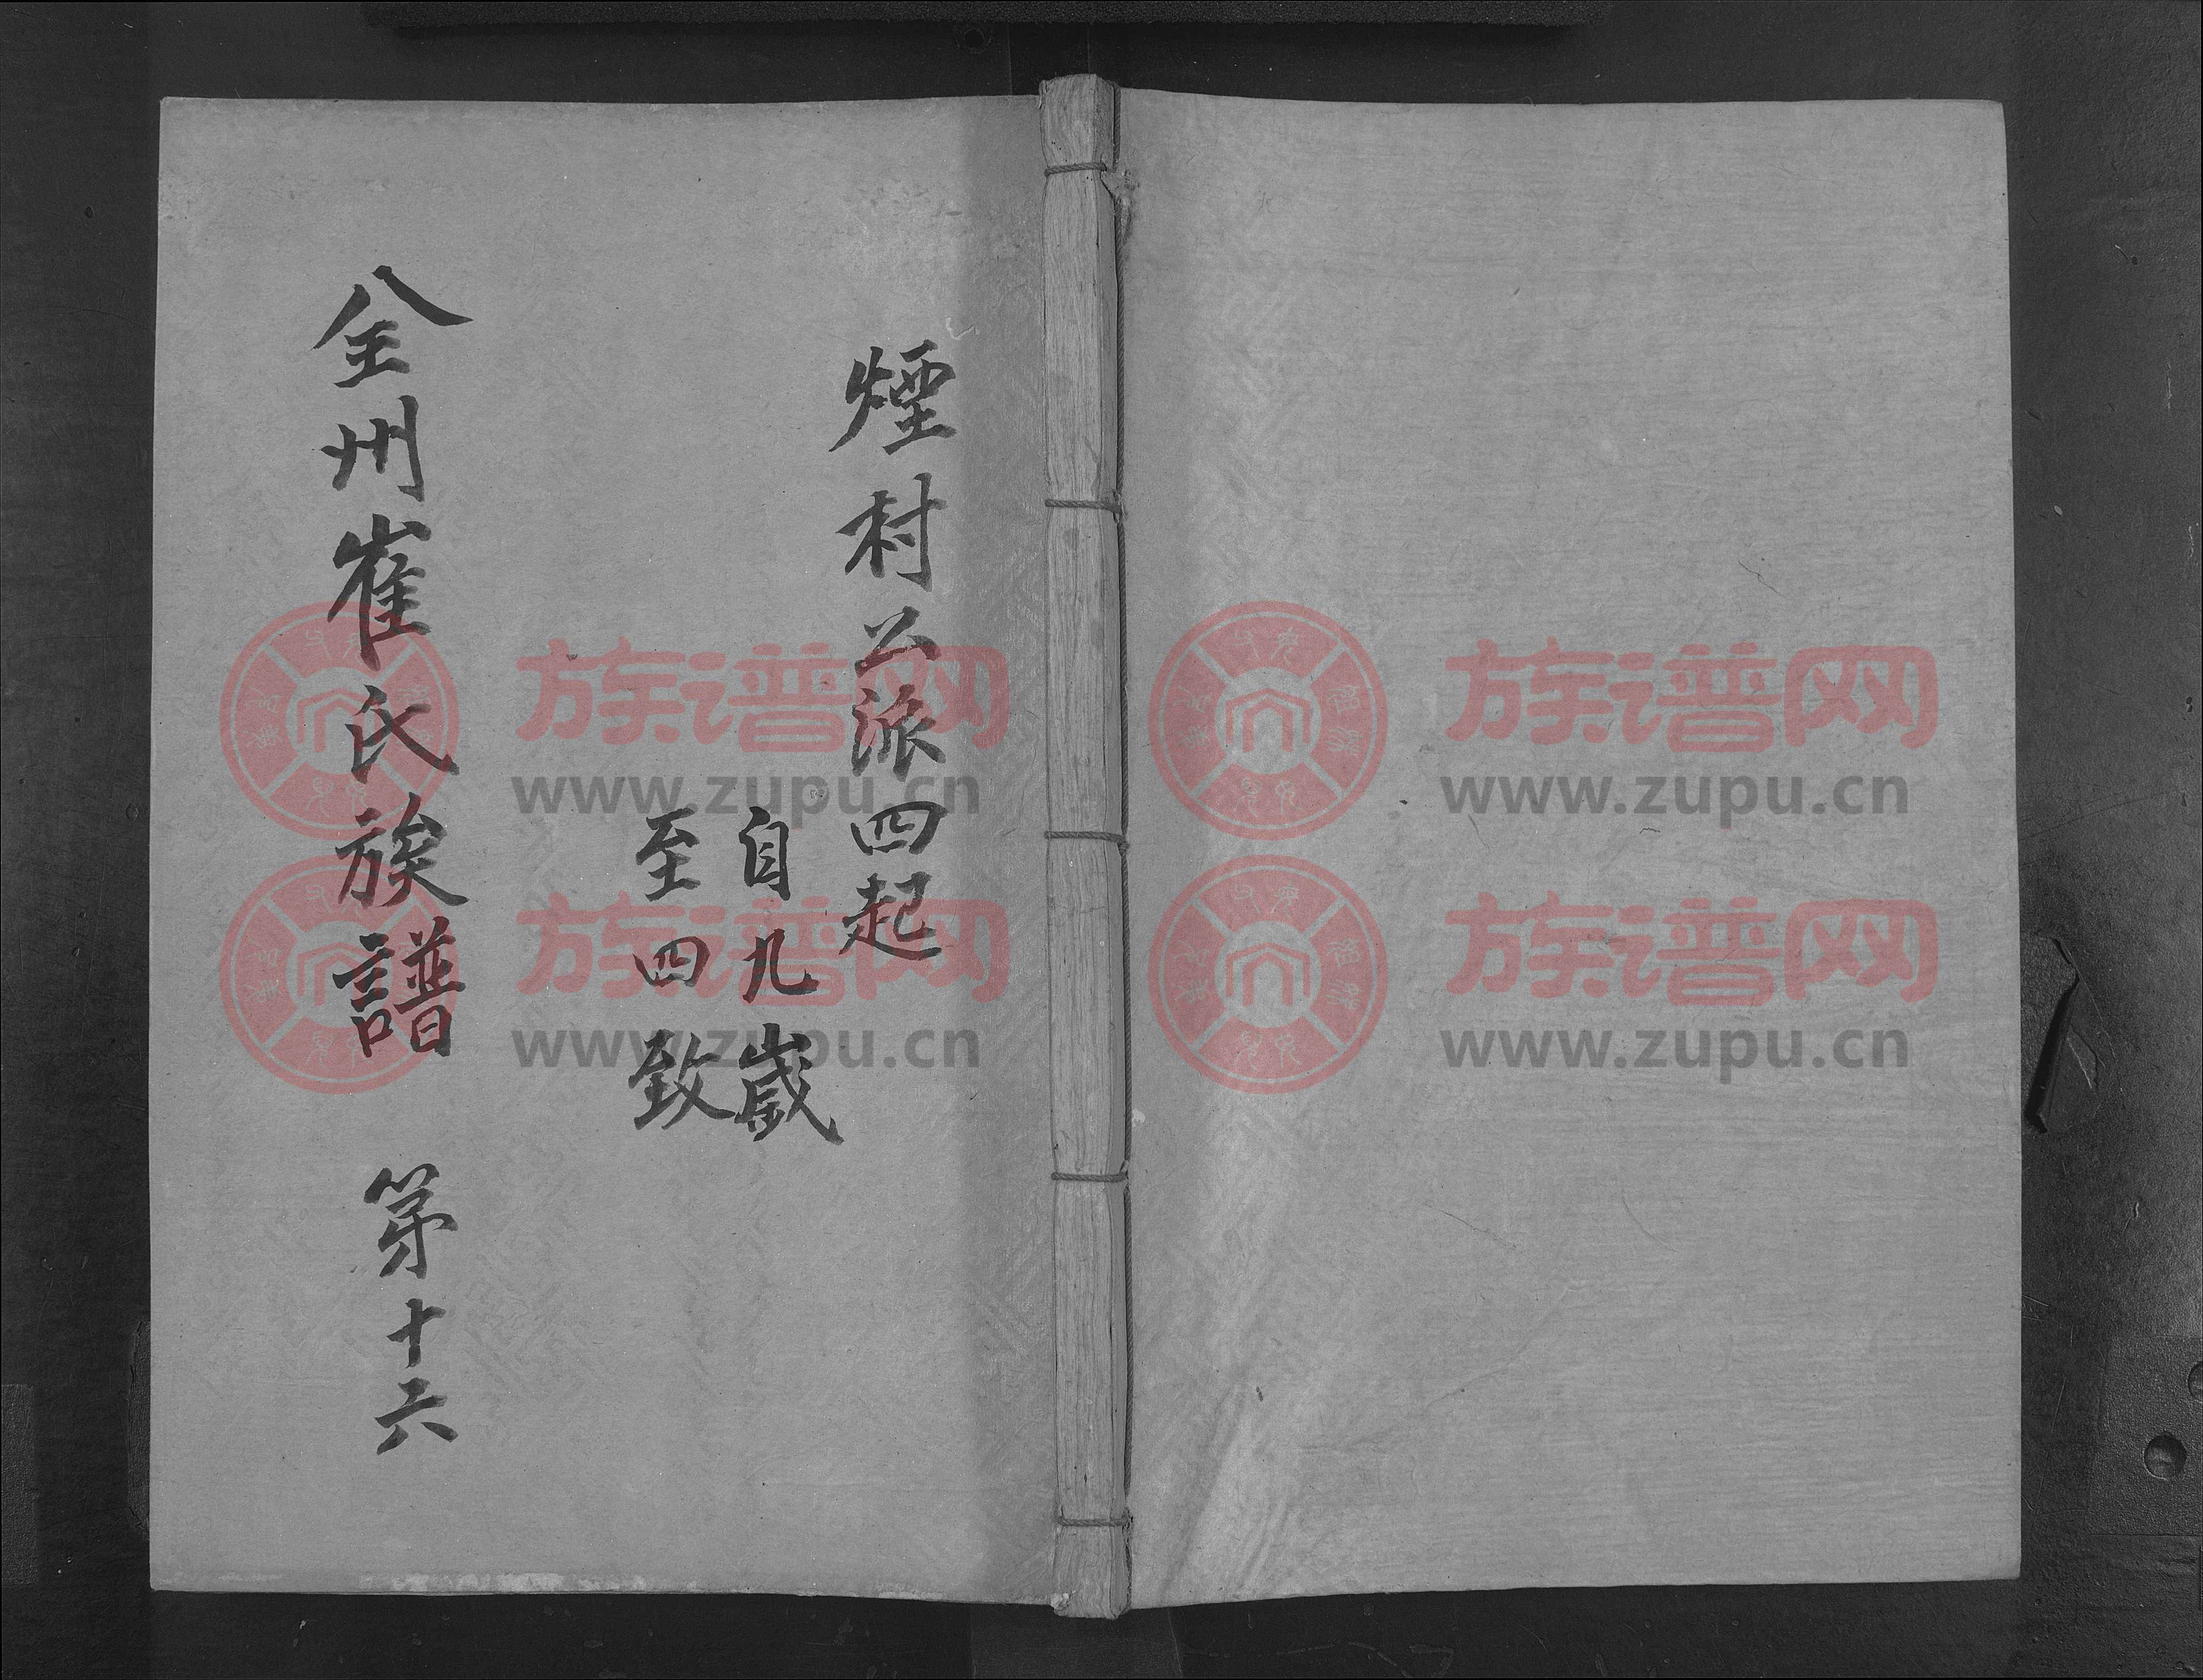 煙村公派四起
自九歲
至四致
全州崔氏族譜 第十六
族谱网
www.zupu.cn
族谱网
www.zupu.cn
族谱网
www.zupu.cn
族谱网
www.zupu.cn